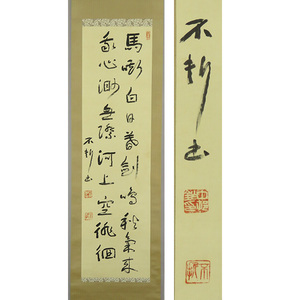 馬嘶白日暮劍鳴秋氣來
我心渺無際河上空徘徊
不析書
不析書